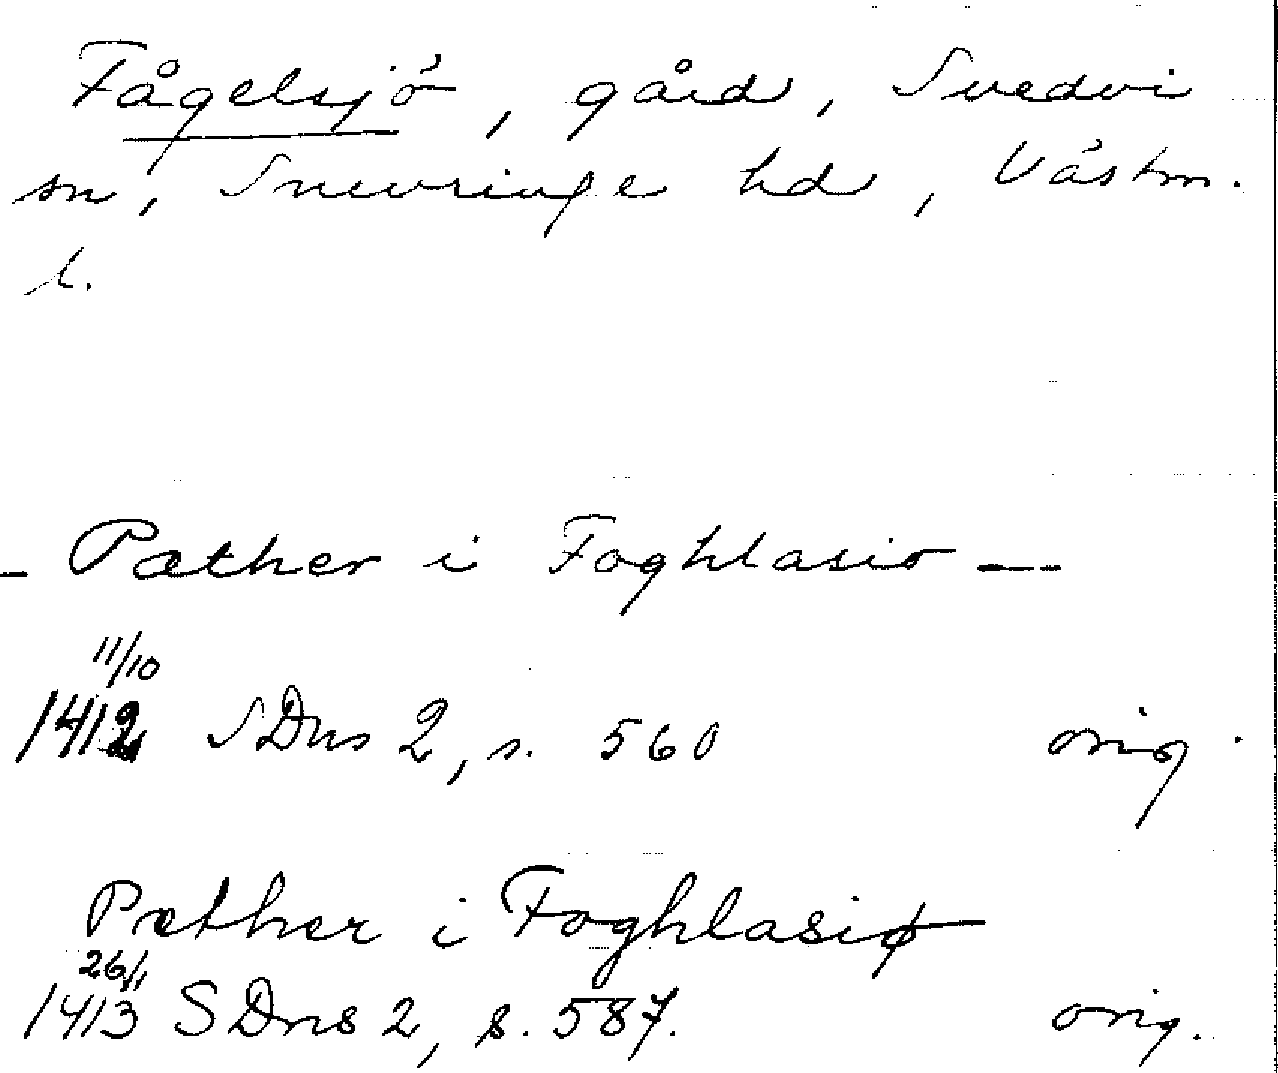 Fågelsjö, gård, Svedvi
sn, Snevringe hd, Västm.
l.
_ Pæther i Foghlasio --
11/10
1412 SDns 2, s. 560 orig.
Pæther i Foghlasiø
26/1
1413 SDns 2, s. 587. orig.